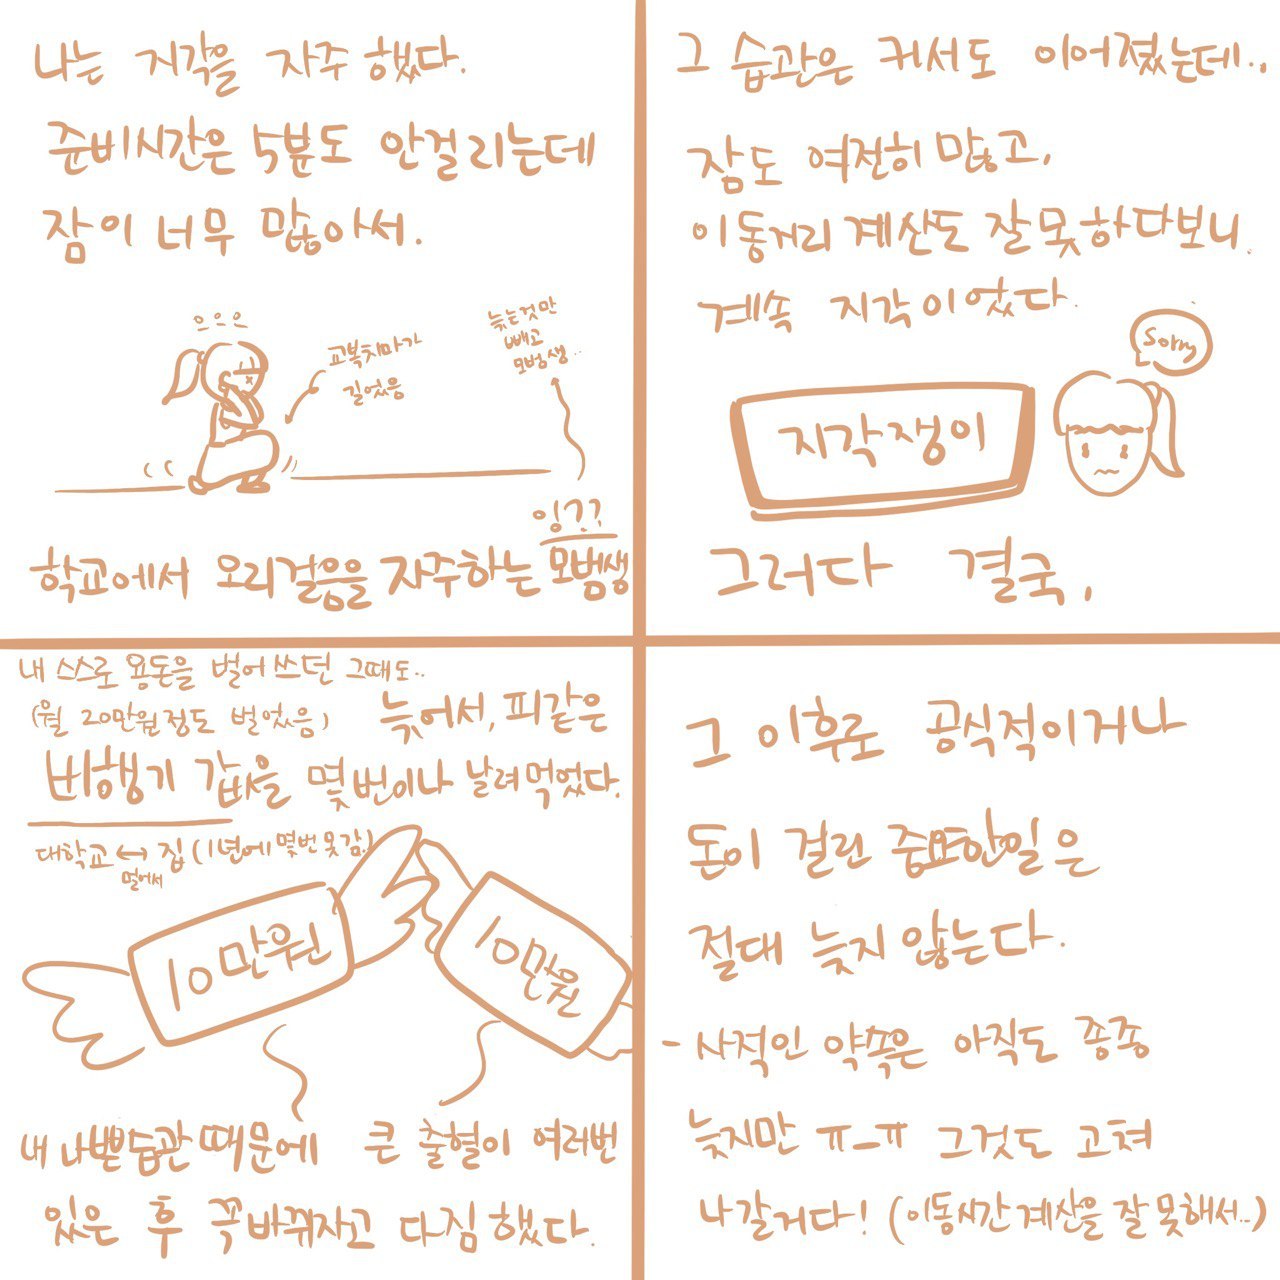 나는 지각을 자주 했다.
준비시간은 5분도 안걸리는데
잠이 너무 많아서.
교복치마가
길었음
늦는것만
빼고
모범생..
잉??
학교에서 오리걸음을 자주하는 모범생
그 습관은 커서도 이어졌는데..
잠도 여전히 많고,
이동거리 계산도 잘 못하다보니
계속 지각이었다.
Sorry
지각쟁이
그러다 결국,
내 스스로 용돈을 벌어 쓰던 그때도..
(월 20만원정도 벌었음)
늦어서, 피같은
비행기 값을 몇번이나 날려먹었다.
대학교 ↔ 집 (1년에 몇번 못감)
멀어서
10만원
10만원
내 나쁜습관 때문에 큰 출혈이 여러번
있은 후 꼭바뀌자고 다짐했다.
그 이후로 공식적이거나
돈이 걸린 중요한일은
절대 늦지 않는다.
- 사적인 약속은 아직도 종종
늦지만 ㅠ_ㅠ 그것도 고쳐
나갈거다! (이동시간계산을 잘 못해서..)